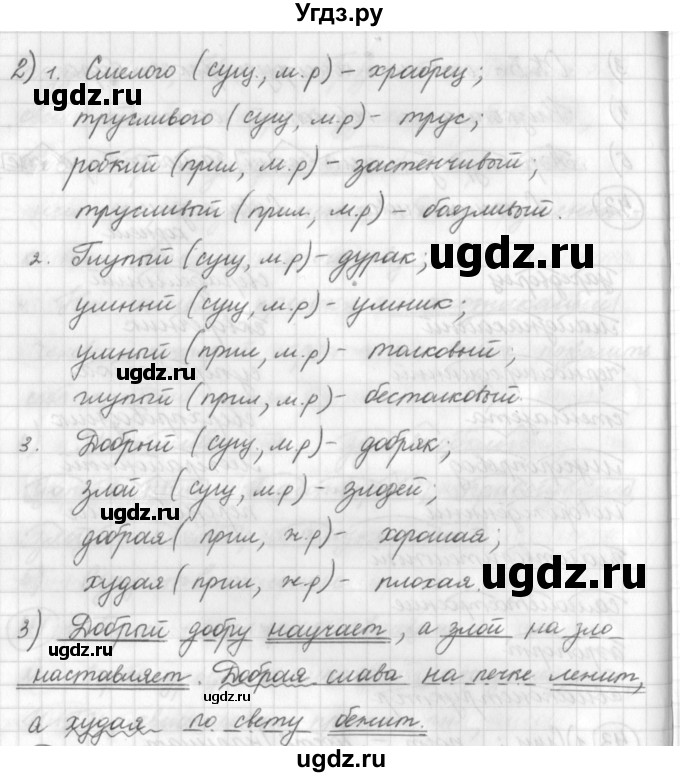 Угдз.ру
2) 1. Смелого (сущ., м.р) – храбрец;
ugdz.ru
трусливого (сущ, м.р) – трус;
робкий (прил, м.р) – застенчивый;
трусливый (прил, м.р) – боязливый.
2. Глупый (сущ, м.р) – дурак;
ugdz.ru
умный (сущ, м.р) – умник;
умный (прил, м.р) – толковый;
ugdz.ru
глупый (прил, м.р) – бестолковый
3. Добрый (сущ, м.р) – добряк;
злой (сущ, м.р) – злодей;
ugdz.ru
добрая (прил, ж.р) – хорошая;
худая (прил, ж.р) – плохая.
ugdz.ru
3) Добрый добру научает, а злой на зло
ugdz.ru
наставляет. Добрая слава на печке лежит,
ugdz.ru
а худая по свету бежит.
ugdz.ru